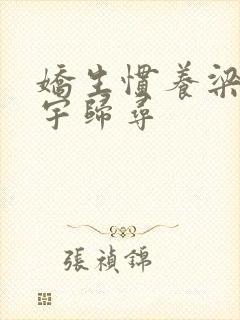 嬌生慣養梁
宇歸尋
張禎錦